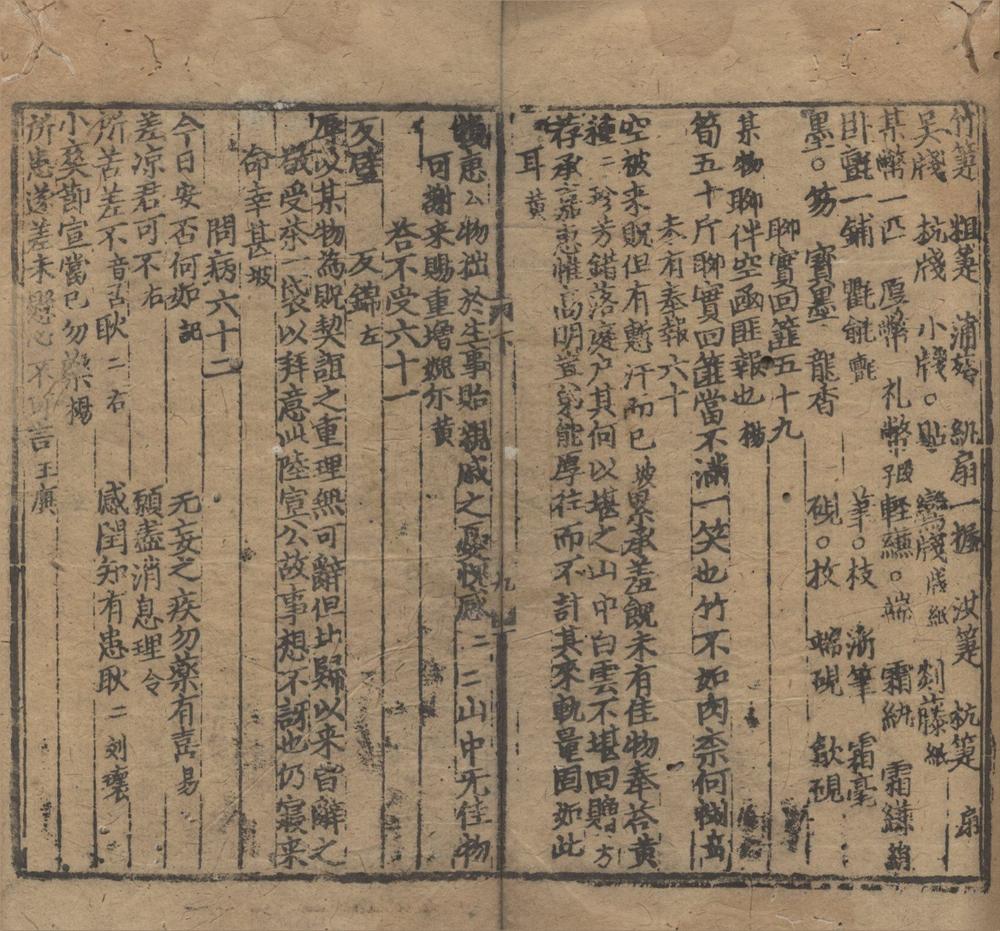 竹簟 粗簟 蒲 紈扇一握 簟 杭簟 扇
吳牋 杭牋 小牋○貼 鸞牋 牋紙 剡藤紙
某幣一匹 厚幣 礼幣 輕縑○端 霜紈 霜縑 綃
卧氈一鋪 氍毹 筆○枝 漸筆 霜毫
墨○笏 寶墨 龍香 硯○枚 端硯 歙硯
聊實回篚五十九
某物聊伴空函匪報也 楊
筍五十斤聊實回篚當不滿一笑也竹不如肉柰何
未有奉報六十
空被来貺但有慙汗而已 坡 累承羞餽未有佳物奉荅 黄
種二珍芳錯落庭户其何以堪之山中白雲不堪回贈 方
荐承嘉惠惟高明 能厚往而不計其来軌量固如此
耳 黄
惠公物拙於生事貽親戚之憂愧感二二山中无佳物
回謝来賜重增 黄
荅不受六十一
反璧 反錦 左
厚以某物為貺契誼之重理無可辭但此歸以来皆辭之
敬受茶一袋以拜意此陸宣公故事想不訝也仍寢来
命幸甚 坡
問病六十二
今日安否何如 記 无妄之疾勿藥有喜 易
差凉君可不 右 願盡消息理 令
所苦差不音否耿二 右 感閏知有患耿二 刘瓌
小奕節宣當已勿藥 楊
所患遂差未懸心不可言 王廙